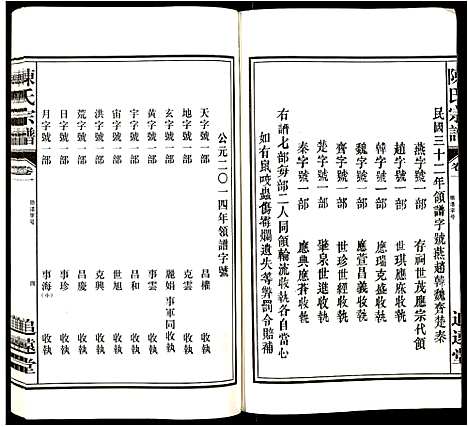 陳氏宗譜
卷一
追遠堂
民國三十二年領譜字號燕趙韓魏齊楚秦
燕字號一部 存祠世茂應宗代領
趙字號一部 世琪應庥收執
韓字號一部 應瑞克盛收執
魏字號一部 應萱昌義收執
齊字號一部 世珍世經收執
楚字號一部 肇泉世進收執
秦字號一部 應典應蒼收執
右譜七部每部二人同領輪流收執各自當心
如有鼠咬蟲傷霉爛遺失等弊罰令賠補
公元二〇一四年領譜字號
天字號一部 昌權 收執
地字號一部 克雲 收執
玄字號一部 麗娟 事軍同收執
黃字號一部 事雲 收執
宇字號一部 昌和 收執
宙字號一部 世旭 收執
洪字號一部 克興 收執
荒字號一部 昌慶 收執
日字號一部 事珍 收執
月字號一部 事海(小) 收執
陳氏宗譜
卷一
領譜字號
四
追遠堂